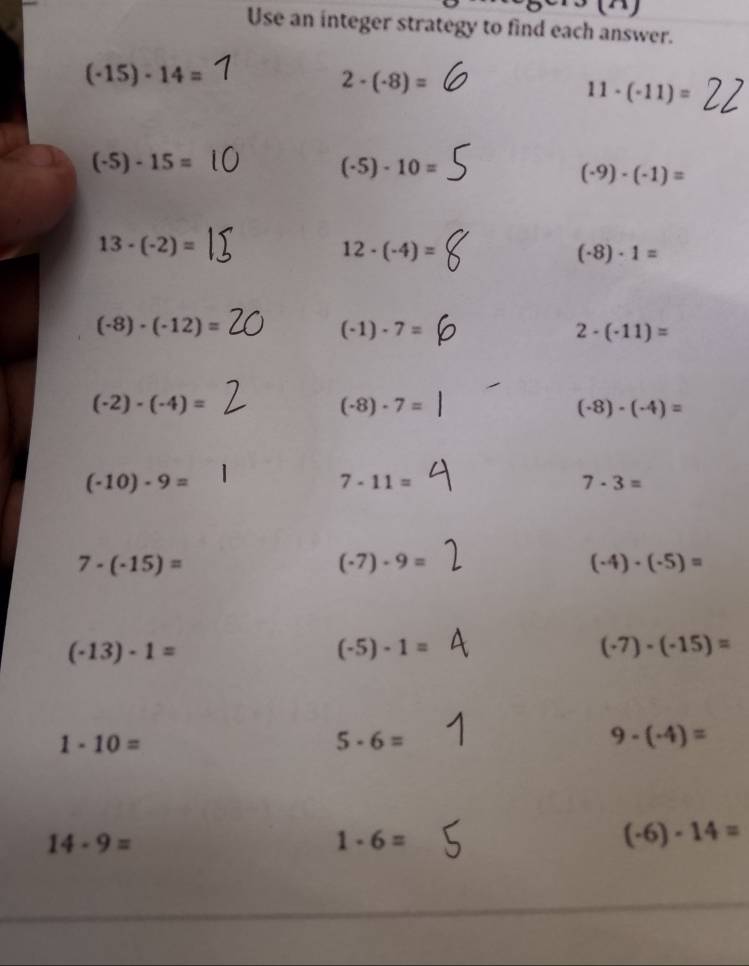 (A)
Use an integer strategy to find each answer.
(-15) - 14 = 1 2 - (-8) = 6 11 - (-11) = 22
(-5) - 15 = 10 (-5) - 10 = 5 (-9) - (-1) =
13 - (-2) = 15 12 - (-4) = 8 (-8) - 1 =
(-8) - (-12) = 20 (-1) - 7 = 6 2 - (-11) =
(-2) - (-4) = 2 (-8) - 7 = 1 (-8) - (-4) =
(-10) - 9 = 1 7 - 11 = 4 7 - 3 =
7 - (-15) = (-7) - 9 = 2 (-4) - (-5) =
(-13) - 1 = (-5) - 1 = 4 (-7) - (-15) =
1 - 10 = 5 - 6 = 1 9 - (-4) =
14 - 9 = 1 - 6 = 5 (-6) - 14 =